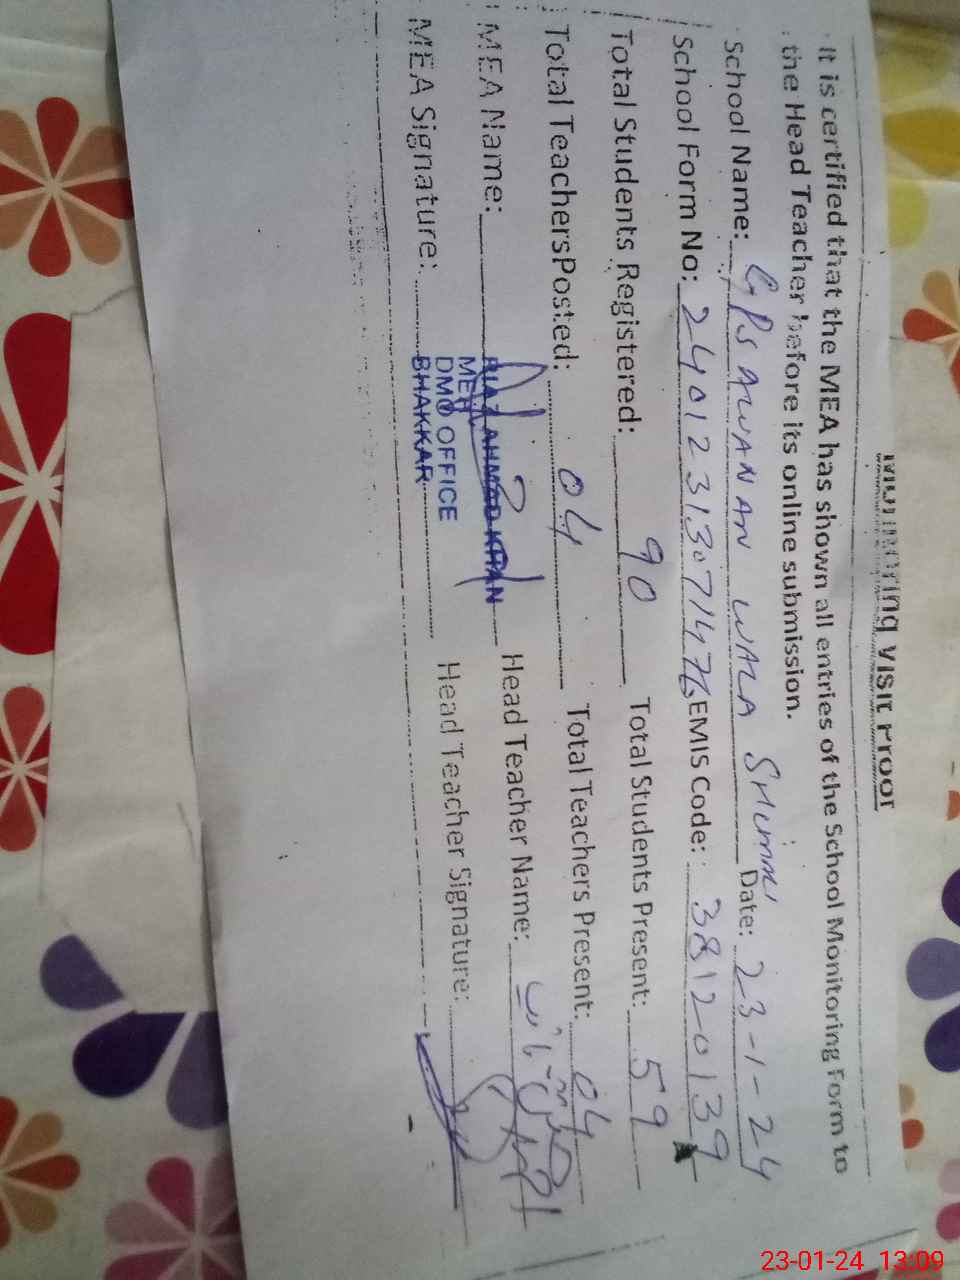 Monitoring Visit Proof
It is certified that the MEA has shown all entries of the School Monitoring Form to
the Head Teacher before its online submission.
School Name: GPS AWANAN WALA SHUMALI Date: 23-1-24
School Form No: EMIS Code: 38120139
Total Students Registered: 90 Total Students Present: 59
Total TeachersPosted: 04 Total Teachers Present: 04
MEA Name: RIAZ AHMAD KHAN Head Teacher Name:
MEA
DMO OFFICE
MEA Signature: BHAKKAR Head Teacher Signature:
23-01-24 13:09